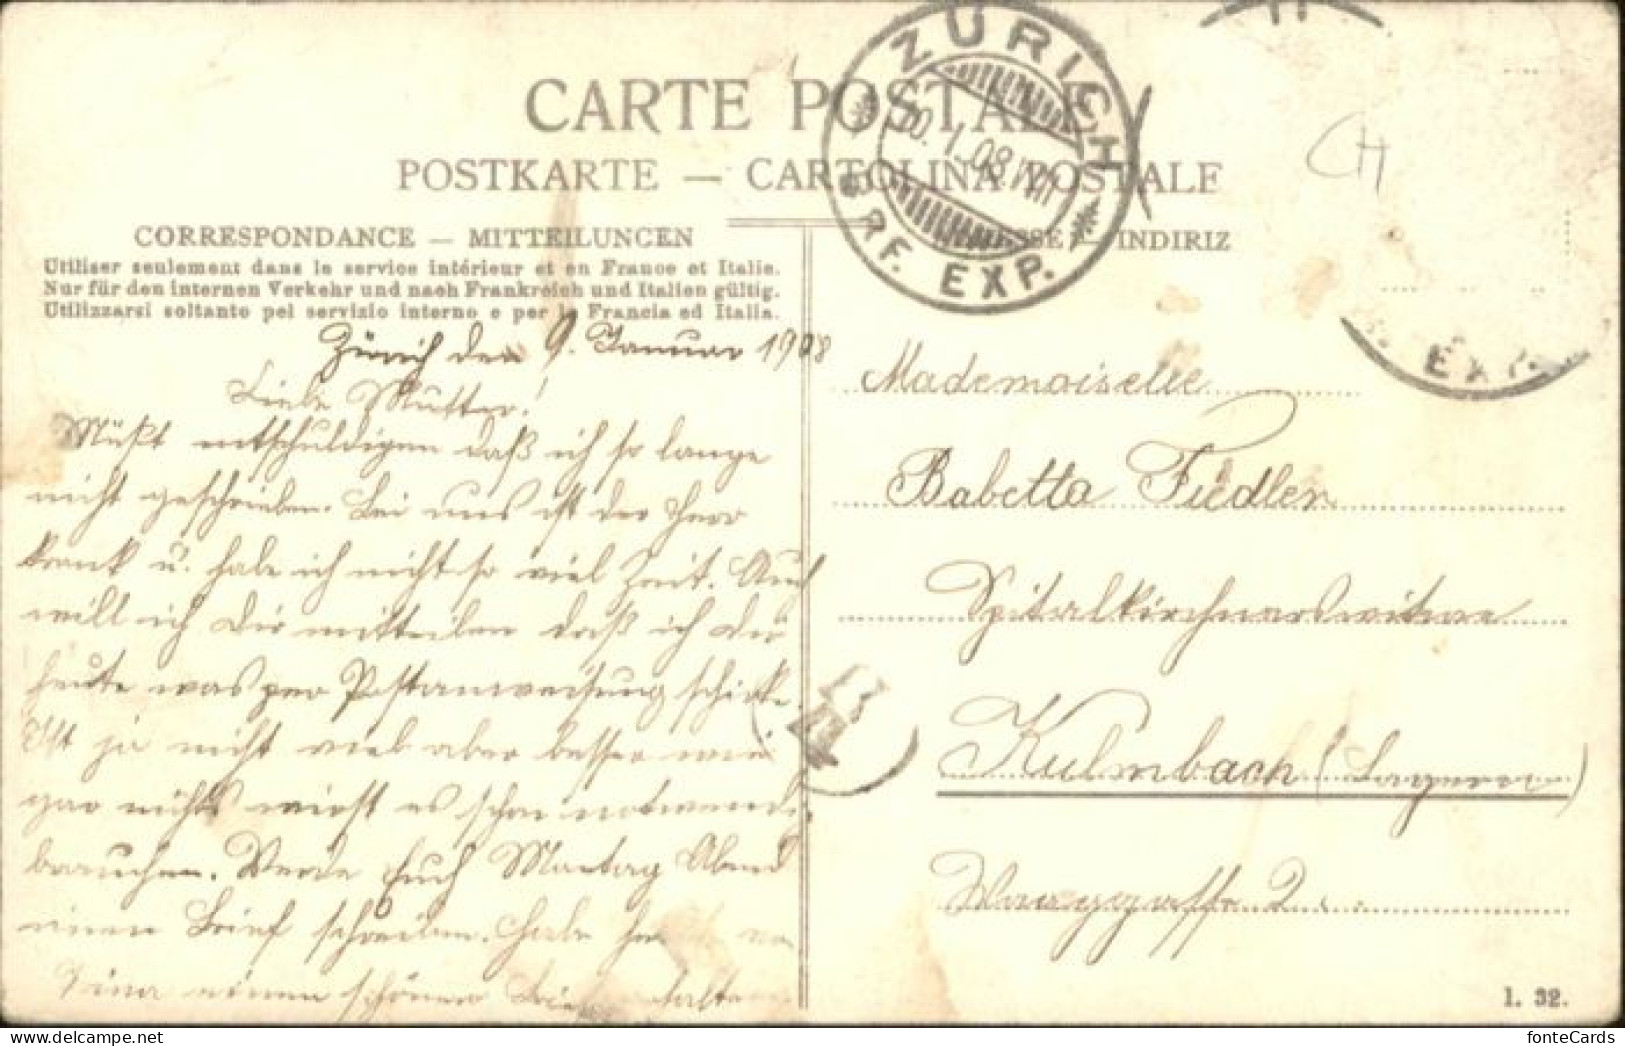 CARTE POSTALE
POSTKARTE — CARTOLINA POSTALE
CORRESPONDANCE — MITTEILUNGEN
Utiliser seulement dans le service intérieur et en France et Italie.
Nur für den internen Verkehr und nach Frankreich und Italien gültig.
Utilizzarsi soltanto pel servizio interno e per la Francia ed Italia.
INDIRIZ
ZÜRICH
10. I. 08. VIII
BRF. EXP.
EXP.
CH
Zürich den 9. Januar 1908
Liebe Mutter!
Müßt entschuldigen daß ich so lange
nicht geschrieben. Bei uns ist der Herr
krank u. habe ich nicht so viel Zeit. Auch
will ich Dir mitteilen daß ich Dir
heute was per Postanweisung schicke.
Ist ja nicht viel aber besser wie
gar nichts wirst es schon notwend.
brauchen. Werde Euch Montag Abend
einen Brief schreiben. Habe von
einen schönen erhalten
Mademoiselle
Babetta Fiedler
Spitalkirchnerswitwe
Kulmbach (Bayern)
2
1. 32.
fonteCards